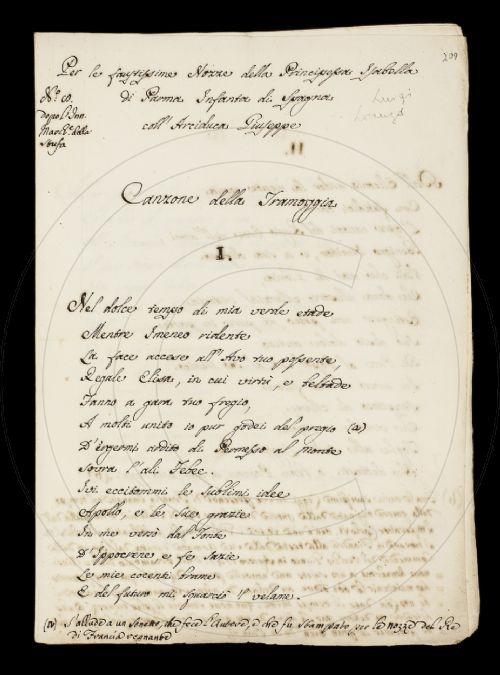 209
Per le faustissime Nozze della Principessa Isabella
di Parma Infanta di Spagna
coll'Arciduca Giuseppe
Luigi
No. 8.
dopo l'Inn.
March.e della
Sousa
II.
Canzone della Tramoggia
I.
Nel dolce tempo di mia verde etade
Mentre Imeneo ridente
La face accese all'Avo tuo possente,
Regale Elisa, in cui virtù, e beltade
Fanno a gara tuo fregio,
A molti unito io pur godei del pregio (a)
D'ergermi ardito di Permesso al monte
Sovra l'ali Febee.
Ivi eccitommi le sublimi idee
Apollo, e le sue grazie
In me versò dal Fonte
D'Ippocrene, e fe sazie
Le mie cocenti brame
E del futuro mi squarciò il velame.
(a) S'allude a un Sonetto, che fece l'Autore, e che fu stampato per le nozze del Re
di Francia regnante